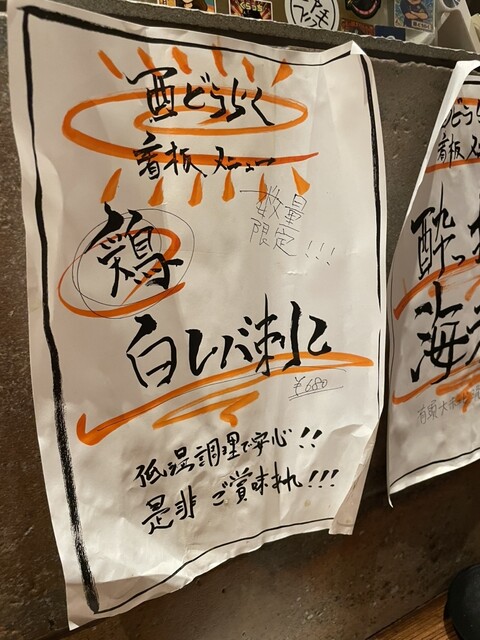 酉どうらく
看板メニュー
数量
限定!!!
鶏
白レバ刺し
¥680
低温調理で安心!!
是非ご賞味あれ!!!
看板メ
酔っ
海